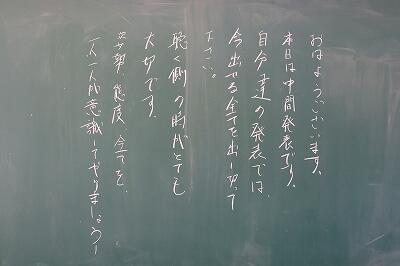 おはようございます。
本日は中間発表です。
自分達の発表では、
今出せる全てを出し切って
下さい。
聴く側の時間もとても
大切です。
姿勢、態度、全てを、
一人一人が意識してやりましょう!